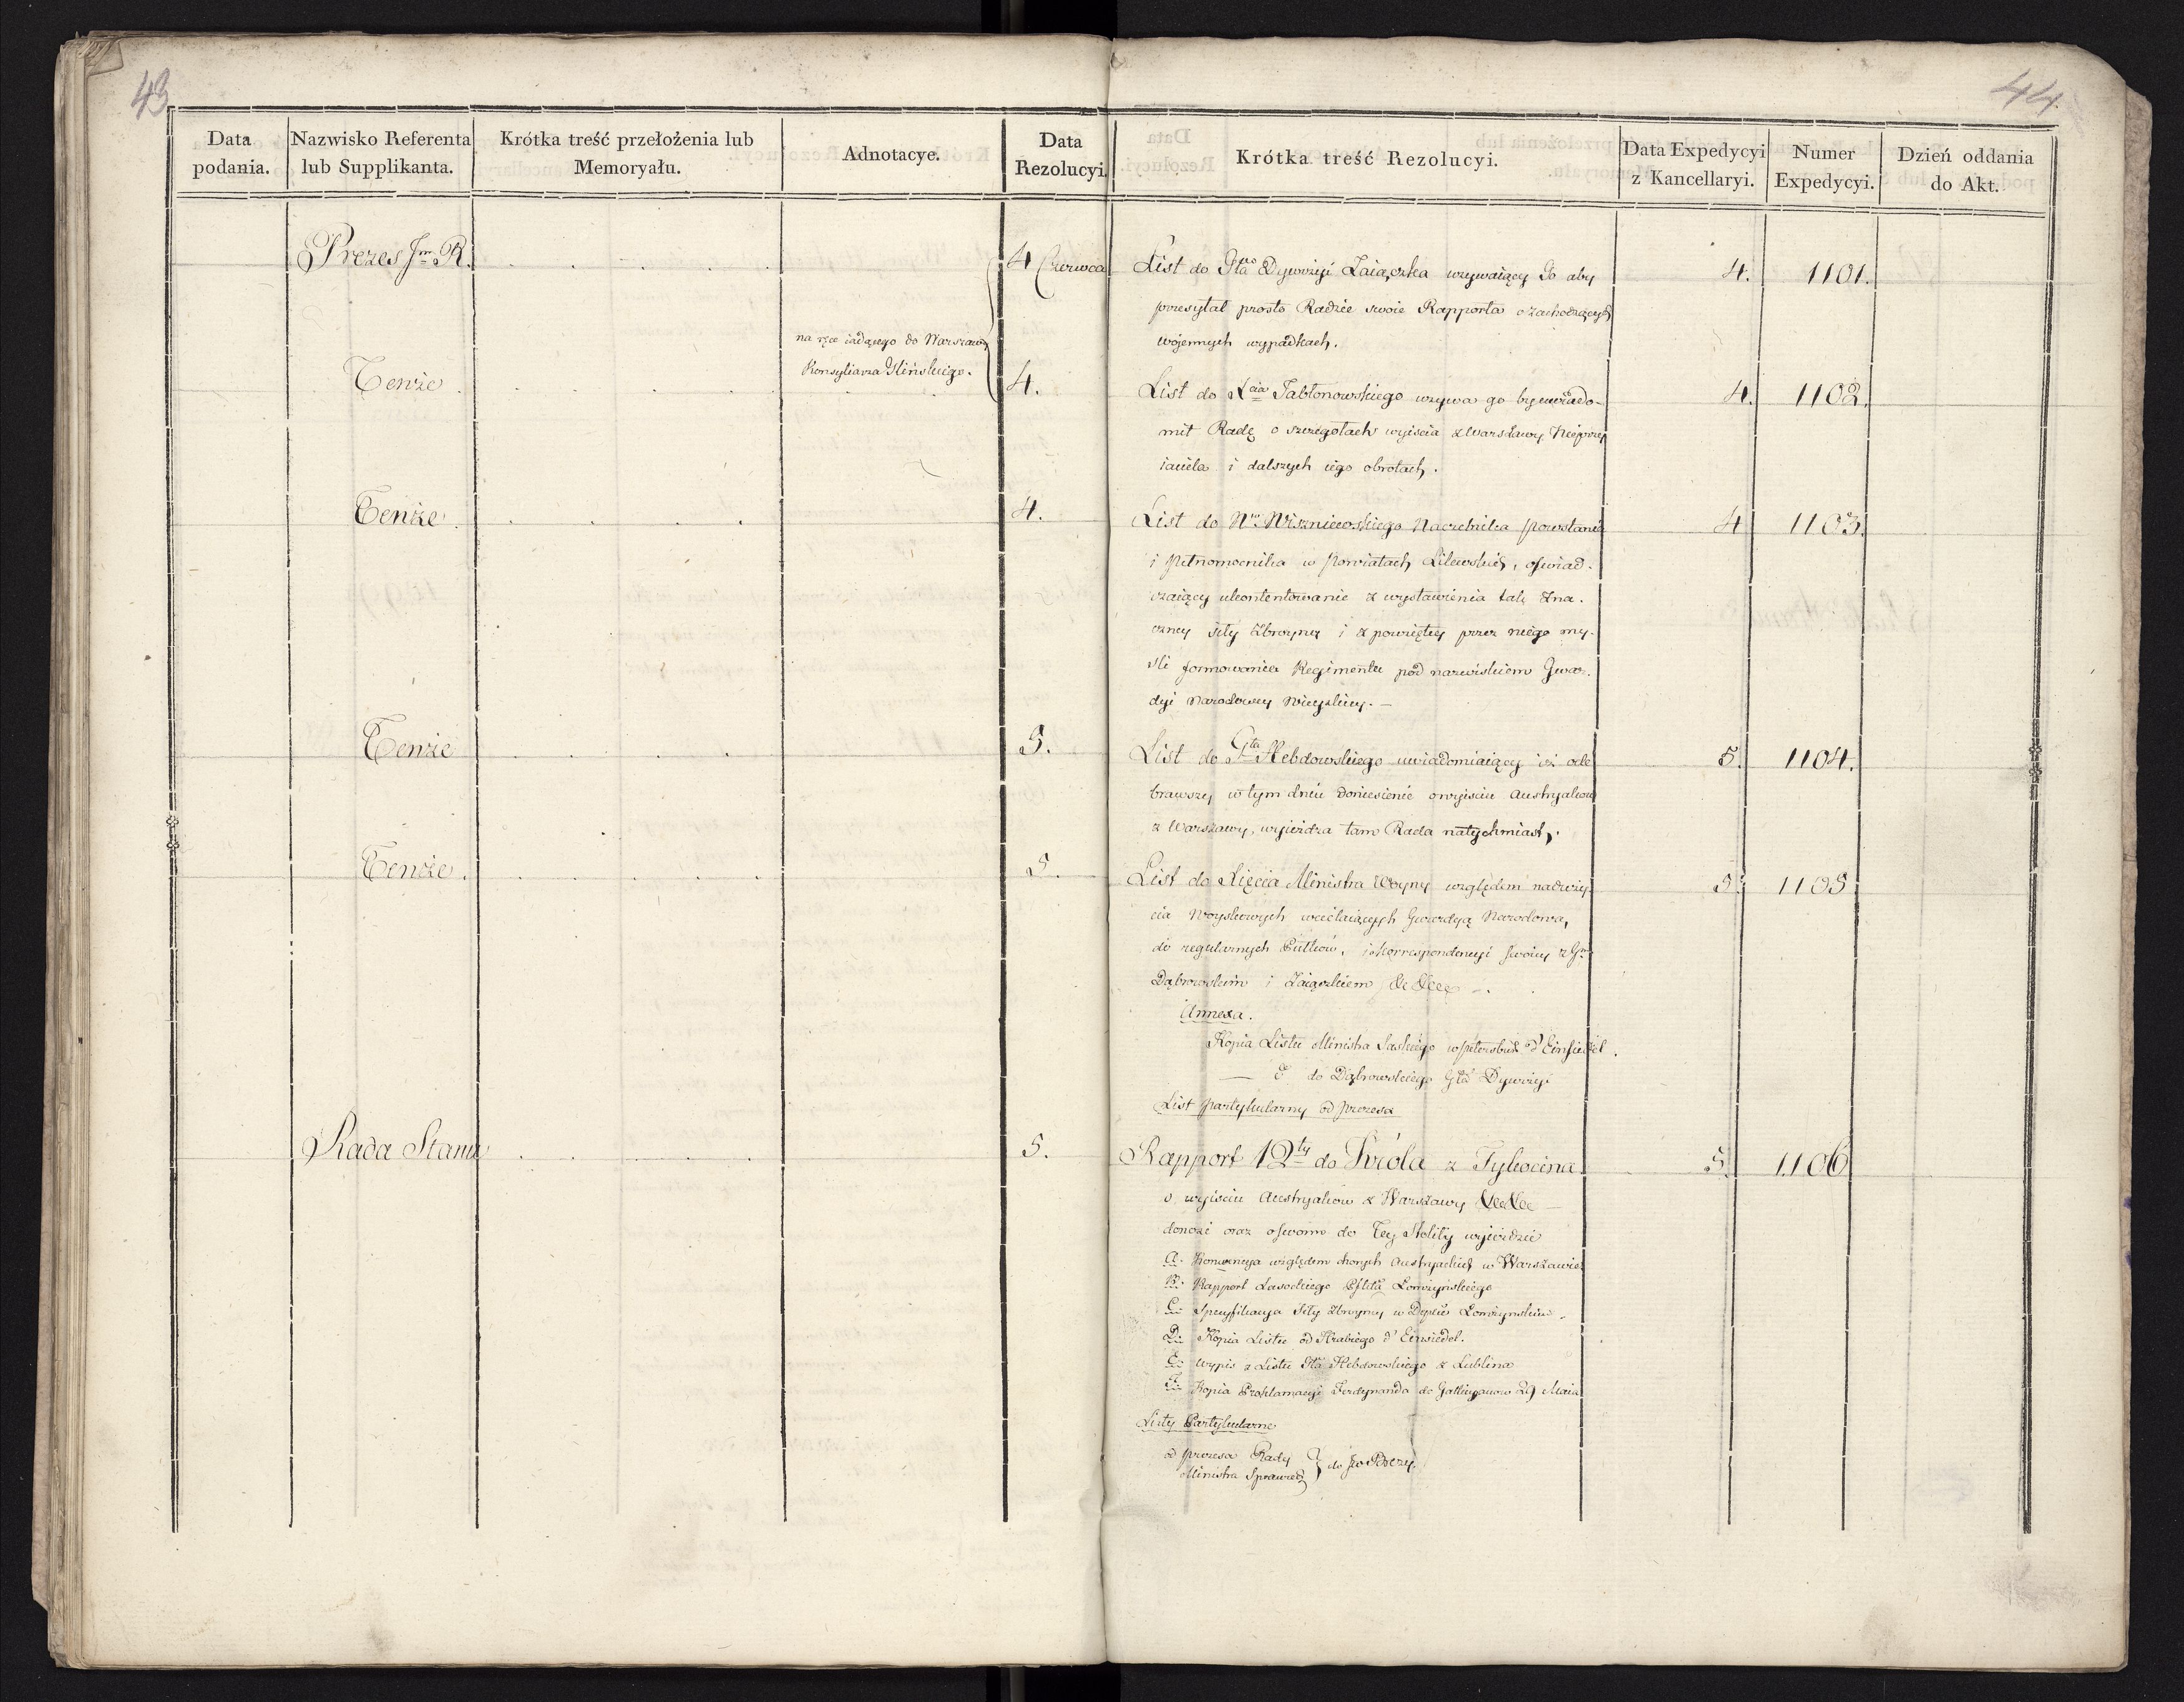 43
44
Data podania.
Nazwisko Referenta lub Supplikanta.
Krótka treść przełożenia lub Memoryału.
Adnotacye.
Data Rezolucyi.
Krótka treść Rezolucyi.
Data Expedycyi z Kancellaryi.
Numer Expedycyi.
Dzień oddania do Akt.
Prezes Jm. R. 4 Czerwca List do Gła Dywizyi Zaiączka wzywaiący Go aby 4. 1101.
przesyłał prosto Radzie swoie Rapporta o zachodzących
woiennych wypadkach.
na ręce iadącego do Warszawy
Konsyliarza Glińskiego.
Tenże 4. List do Xcia Jabłonowskiego wzywa go by uwiado- 4. 1102.
mił Radę o szczegołach wyiscia z Warszawy Nieprzy
iaciela i dalszych iego obrotach.
Tenże 4. List do Wo Wiszniewskiego Naczelnika powstania 4 1103.
i Pełnomocnika w Powiatach, oswiad-
czaiący ukontentowanie z wystawienia tak zna-
czney siły zbroyney i z powziętey przez niego my-
sli formowania Regimentu pod nazwiskiem Gwar-
dyi Narodowey Wieyskiey. —
Tenże 5. List do Gła Hebdowskiego uwiadomiaiący iż ode 5. 1104.
brawszy w tym dniu doniesienie o wyisciu Austryakow
z Warszawy, wyieżdża tam Rada natychmiast.
Tenże. 5. List do Xięcia Ministra Woyny względem naduży 5. 1105
cia Woyskowych wcielaiących Gwardyą Narodową,
do regularnych Pułków, i korrespondencyi swoiey z Gm
Dąbrowskim i Zaiączkiem
Annexa.
Kopia Listu Ministra Saskiego w Petersburg d'Einsiedel.
— do Dąbrowskiego Gła Dywizyi
List partykularny od Prezesa
Rada Stanu 5. Rapport 12ty do Króla z Tykocina 5. 1106
o wyisciu Austryakow z Warszawy
donosi oraz o swoim do tey Stolicy wyieździe
A. Konwencya względem chorych Austryackich w Warszawie
B. Rapport Lasockiego Łomżyńskiego
C. Specyfikacya Siły zbroyney w Łomżynskim.
D. Kopia Listu od Hrabiego d'Einsiedel.
E. Wypis z Listu Gła Hebdowskiego z Lublina
F. Kopia Proklamacyi Ferdynanda do Gallicyanow 29 Maia
Listy Partykularne
od Prezesa Rady
Ministra Sprawied } do